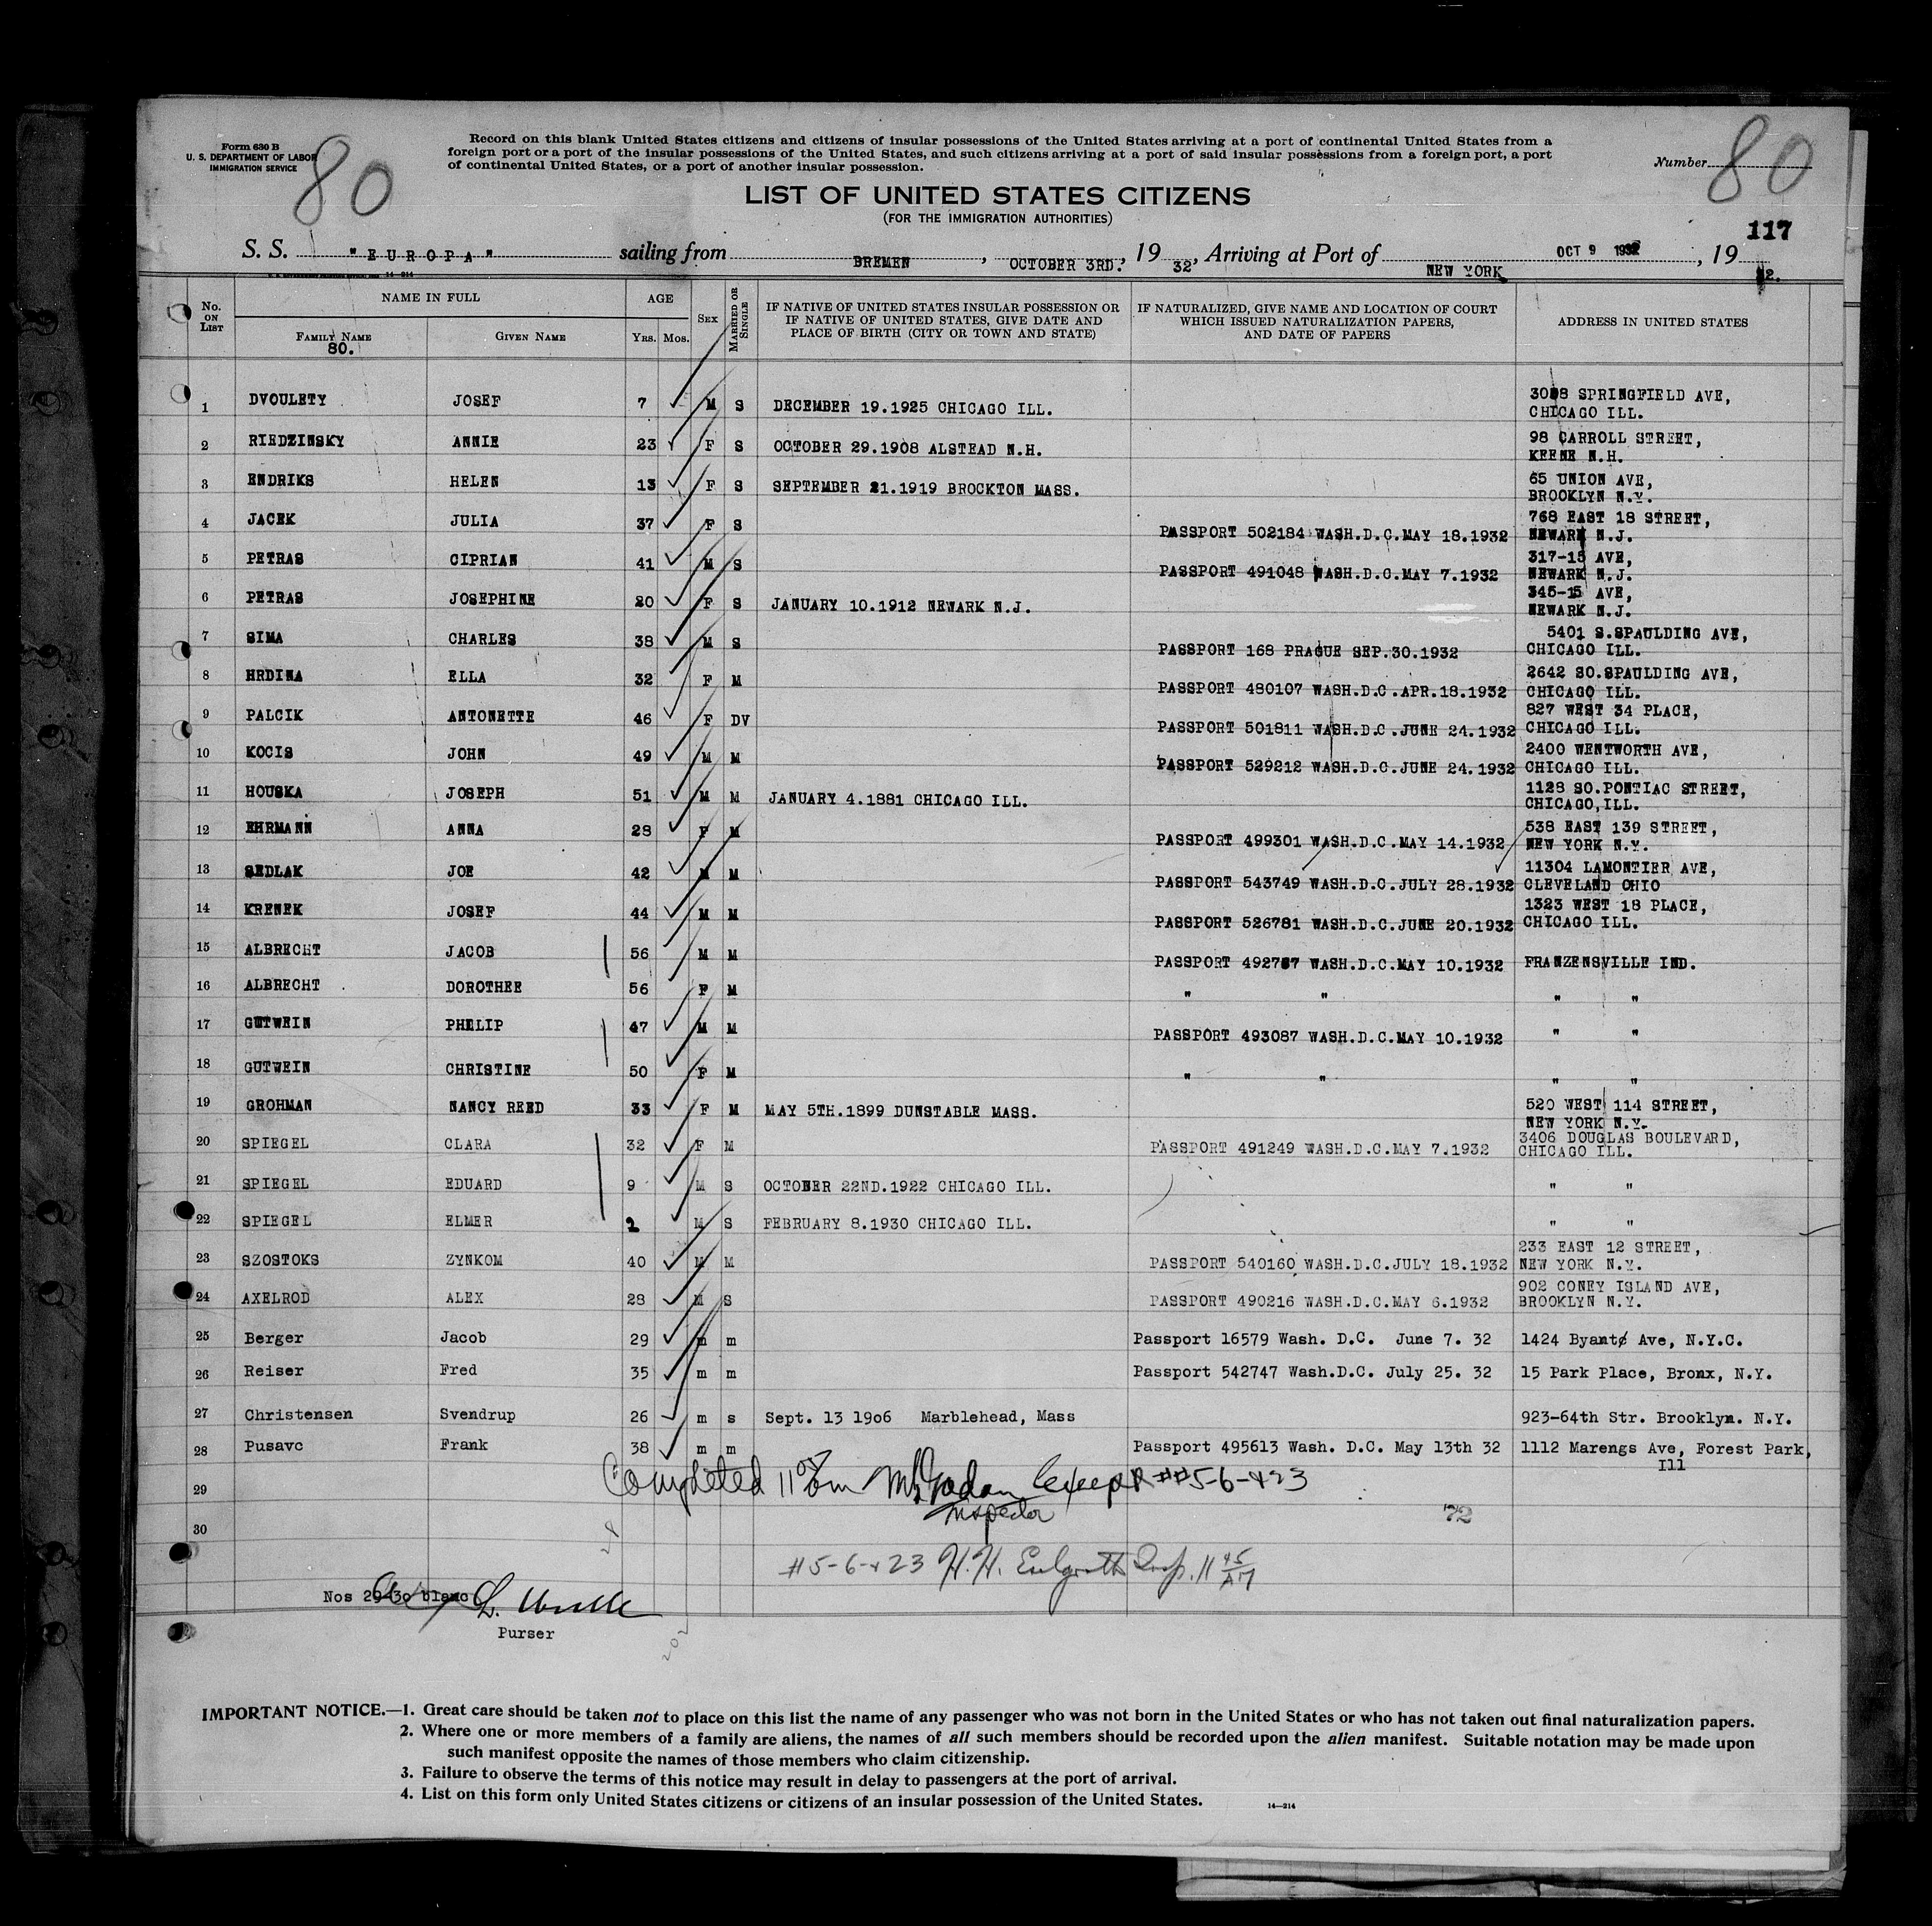 Form 630 B
U. S. DEPARTMENT OF LABOR
IMMIGRATION SERVICE
80
Record on this blank United States citizens and citizens of insular possessions of the United States arriving at a port of continental United States from a
foreign port or a port of the insular possessions of the United States, and such citizens arriving at a port of said insular possessions from a foreign port, a port
of continental United States, or a port of another insular possession.
Number 80
LIST OF UNITED STATES CITIZENS
(FOR THE IMMIGRATION AUTHORITIES)
117
S. S. "EUROPA" sailing from BREMEN, OCTOBER 3RD., 19 32, Arriving at Port of NEW YORK OCT 9 1932, 19 32.
No. ON LIST NAME IN FULL AGE SEX MARRIED OR SINGLE IF NATIVE OF UNITED STATES INSULAR POSSESSION OR IF NATIVE OF UNITED STATES, GIVE DATE AND PLACE OF BIRTH (CITY OR TOWN AND STATE) IF NATURALIZED, GIVE NAME AND LOCATION OF COURT WHICH ISSUED NATURALIZATION PAPERS, AND DATE OF PAPERS ADDRESS IN UNITED STATES
FAMILY NAME GIVEN NAME YRS. MOS.
80.
1 DVOULETY JOSEF 7 M S DECEMBER 19.1925 CHICAGO ILL. SPRINGFIELD AVE, CHICAGO ILL.
2 RIEDZINSKY ANNIE 23 F S OCTOBER 29.1908 ALSTEAD N.H. 98 CARROLL STREET, KEENE N.H.
3 ENDRIKS HELEN 13 F S SEPTEMBER 21.1919 BROCKTON MASS. 65 UNION AVE, BROOKLYN N.Y.
4 JACEK JULIA 37 F S PASSPORT 502184 WASH.D.C.MAY 18.1932 768 EAST 18 STREET, NEWARK N.J.
5 PETRAS CIPRIAN 41 M S PASSPORT 491048 WASH.D.C.MAY 7.1932 317-15 AVE, NEWARK N.J.
6 PETRAS JOSEPHINE 20 F S JANUARY 10.1912 NEWARK N.J. 345-15 AVE, NEWARK N.J.
7 SIMA CHARLES 38 M S PASSPORT 168 PRAGUE SEP.30.1932 5401 S.SPAULDING AVE, CHICAGO ILL.
8 HRDINA ELLA 32 F M PASSPORT 480107 WASH.D.C.APR.18.1932 2642 SO.SPAULDING AVE, CHICAGO ILL.
9 PALCIK ANTONETTE 46 F DV PASSPORT 501811 WASH.D.C.JUNE 24.1932 827 WEST 34 PLACE, CHICAGO ILL.
10 KOCIS JOHN 49 M M PASSPORT 529212 WASH.D.C.JUNE 24.1932 2400 WENTWORTH AVE, CHICAGO ILL.
11 HOUSKA JOSEPH 51 M M JANUARY 4.1881 CHICAGO ILL. 1128 SO.PONTIAC STREET, CHICAGO,ILL.
12 EHRMANN ANNA 28 F M PASSPORT 499301 WASH.D.C.MAY 14.1932 538 EAST 139 STREET, NEW YORK N.Y.
13 SEDLAK JOE 42 M M PASSPORT 543749 WASH.D.C.JULY 28.1932 11304 LAMONTIER AVE, CLEVELAND OHIO
14 KRENEK JOSEF 44 M M PASSPORT 526781 WASH.D.C.JUNE 20.1932 1323 WEST 18 PLACE, CHICAGO ILL.
15 ALBRECHT JACOB 56 M M PASSPORT 492787 WASH.D.C.MAY 10.1932 FRANZENSVILLE IND.
16 ALBRECHT DOROTHEE 56 F M " " " "
17 GUTWEIN PHELIP 47 M M PASSPORT 493087 WASH.D.C.MAY 10.1932 " "
18 GUTWEIN CHRISTINE 50 F M " " " "
19 GROHMAN NANCY REED 33 F M MAY 5TH.1899 DUNSTABLE MASS. 520 WEST 114 STREET, NEW YORK N.Y.
20 SPIEGEL CLARA 32 F M PASSPORT 491249 WASH.D.C.MAY 7.1932 3406 DOUGLAS BOULEVARD, CHICAGO ILL.
21 SPIEGEL EDUARD 9 M S OCTOBER 22ND.1922 CHICAGO ILL. " "
22 SPIEGEL ELMER 2 M S FEBRUARY 8.1930 CHICAGO ILL. " "
23 SZOSTOKS ZYNKOM 40 M M PASSPORT 540160 WASH.D.C.JULY 18.1932 233 EAST 12 STREET, NEW YORK N.Y.
24 AXELROD ALEX 28 M S PASSPORT 490216 WASH.D.C.MAY 6.1932 902 CONEY ISLAND AVE, BROOKLYN N.Y.
25 Berger Jacob 29 m m Passport 16579 Wash. D.C. June 7. 32 1424 Byant Ave, N.Y.C.
26 Reiser Fred 35 m m Passport 542747 Wash.D.C. July 25. 32 15 Park Place, Bronx, N.Y.
27 Christensen Svendrup 26 m s Sept. 13 1906 Marblehead, Mass 923-64th Str. Brooklyn. N.Y.
28 Pusavc Frank 38 m m Passport 495613 Wash. D.C. May 13th 32 1112 Marengs Ave, Forest Park, Ill
Completed Except ##5-6-+23
29
Inspector
72
30
#5-6-+23 H.H. Insp. 11 45 AM
Nos 29-30 blanc
Purser
202
IMPORTANT NOTICE.—1. Great care should be taken not to place on this list the name of any passenger who was not born in the United States or who has not taken out final naturalization papers.
2. Where one or more members of a family are aliens, the names of all such members should be recorded upon the alien manifest. Suitable notation may be made upon
such manifest opposite the names of those members who claim citizenship.
3. Failure to observe the terms of this notice may result in delay to passengers at the port of arrival.
4. List on this form only United States citizens or citizens of an insular possession of the United States.
14—214